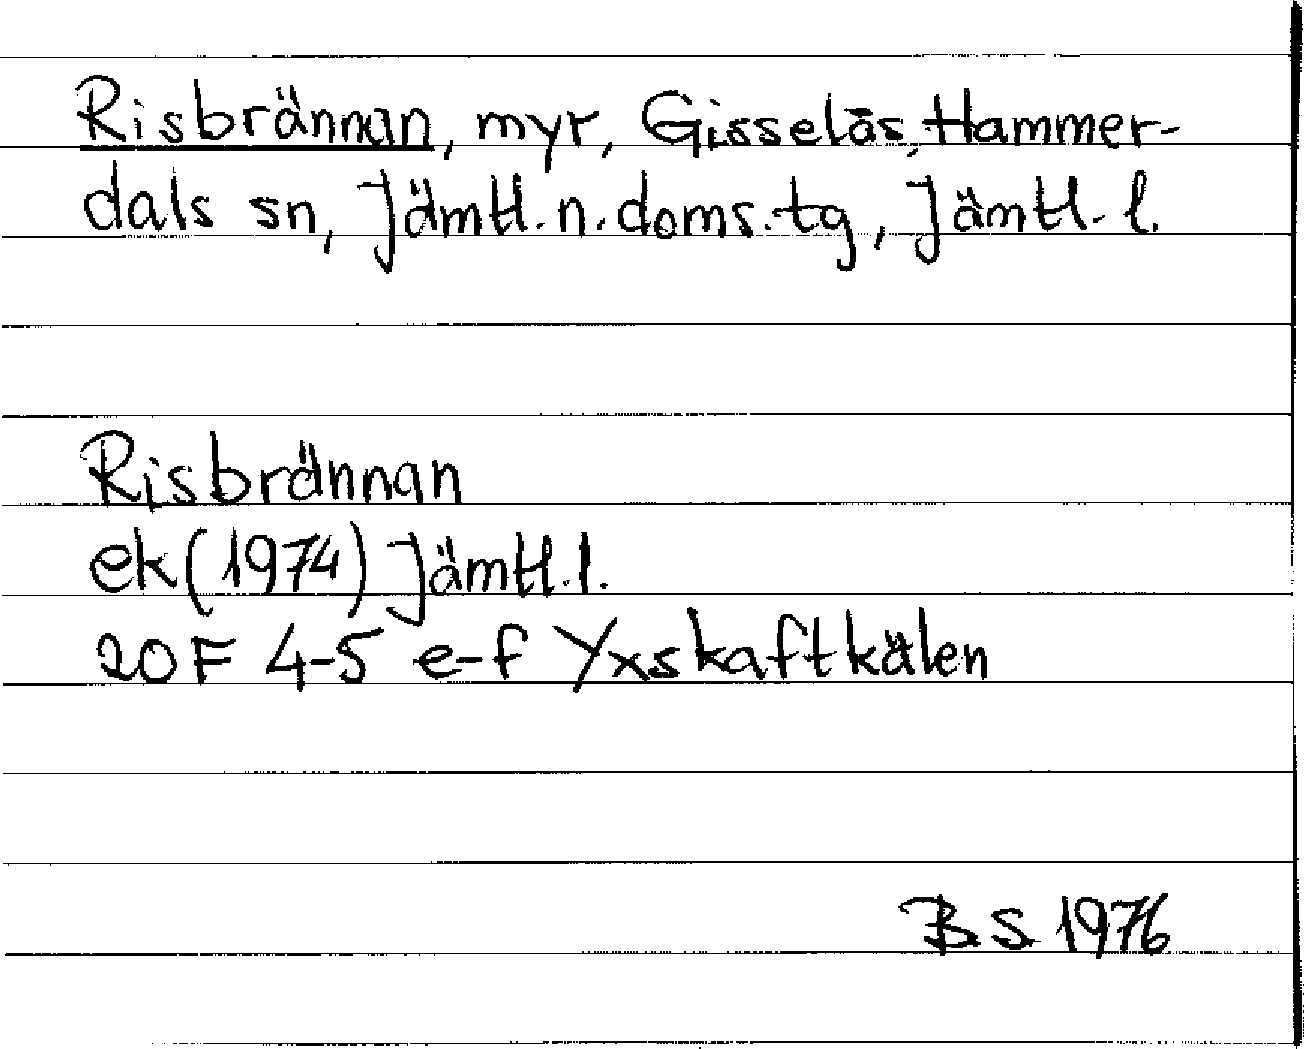 Risbrännan, myr, Gisselås, Hammer-
dals sn, Jämtl. n. doms. tg, Jämtl. l.
Risbrännan
ek (1974) Jämtl. l.
20F 4-5 e-f Yxskaftkälen
BS 1976